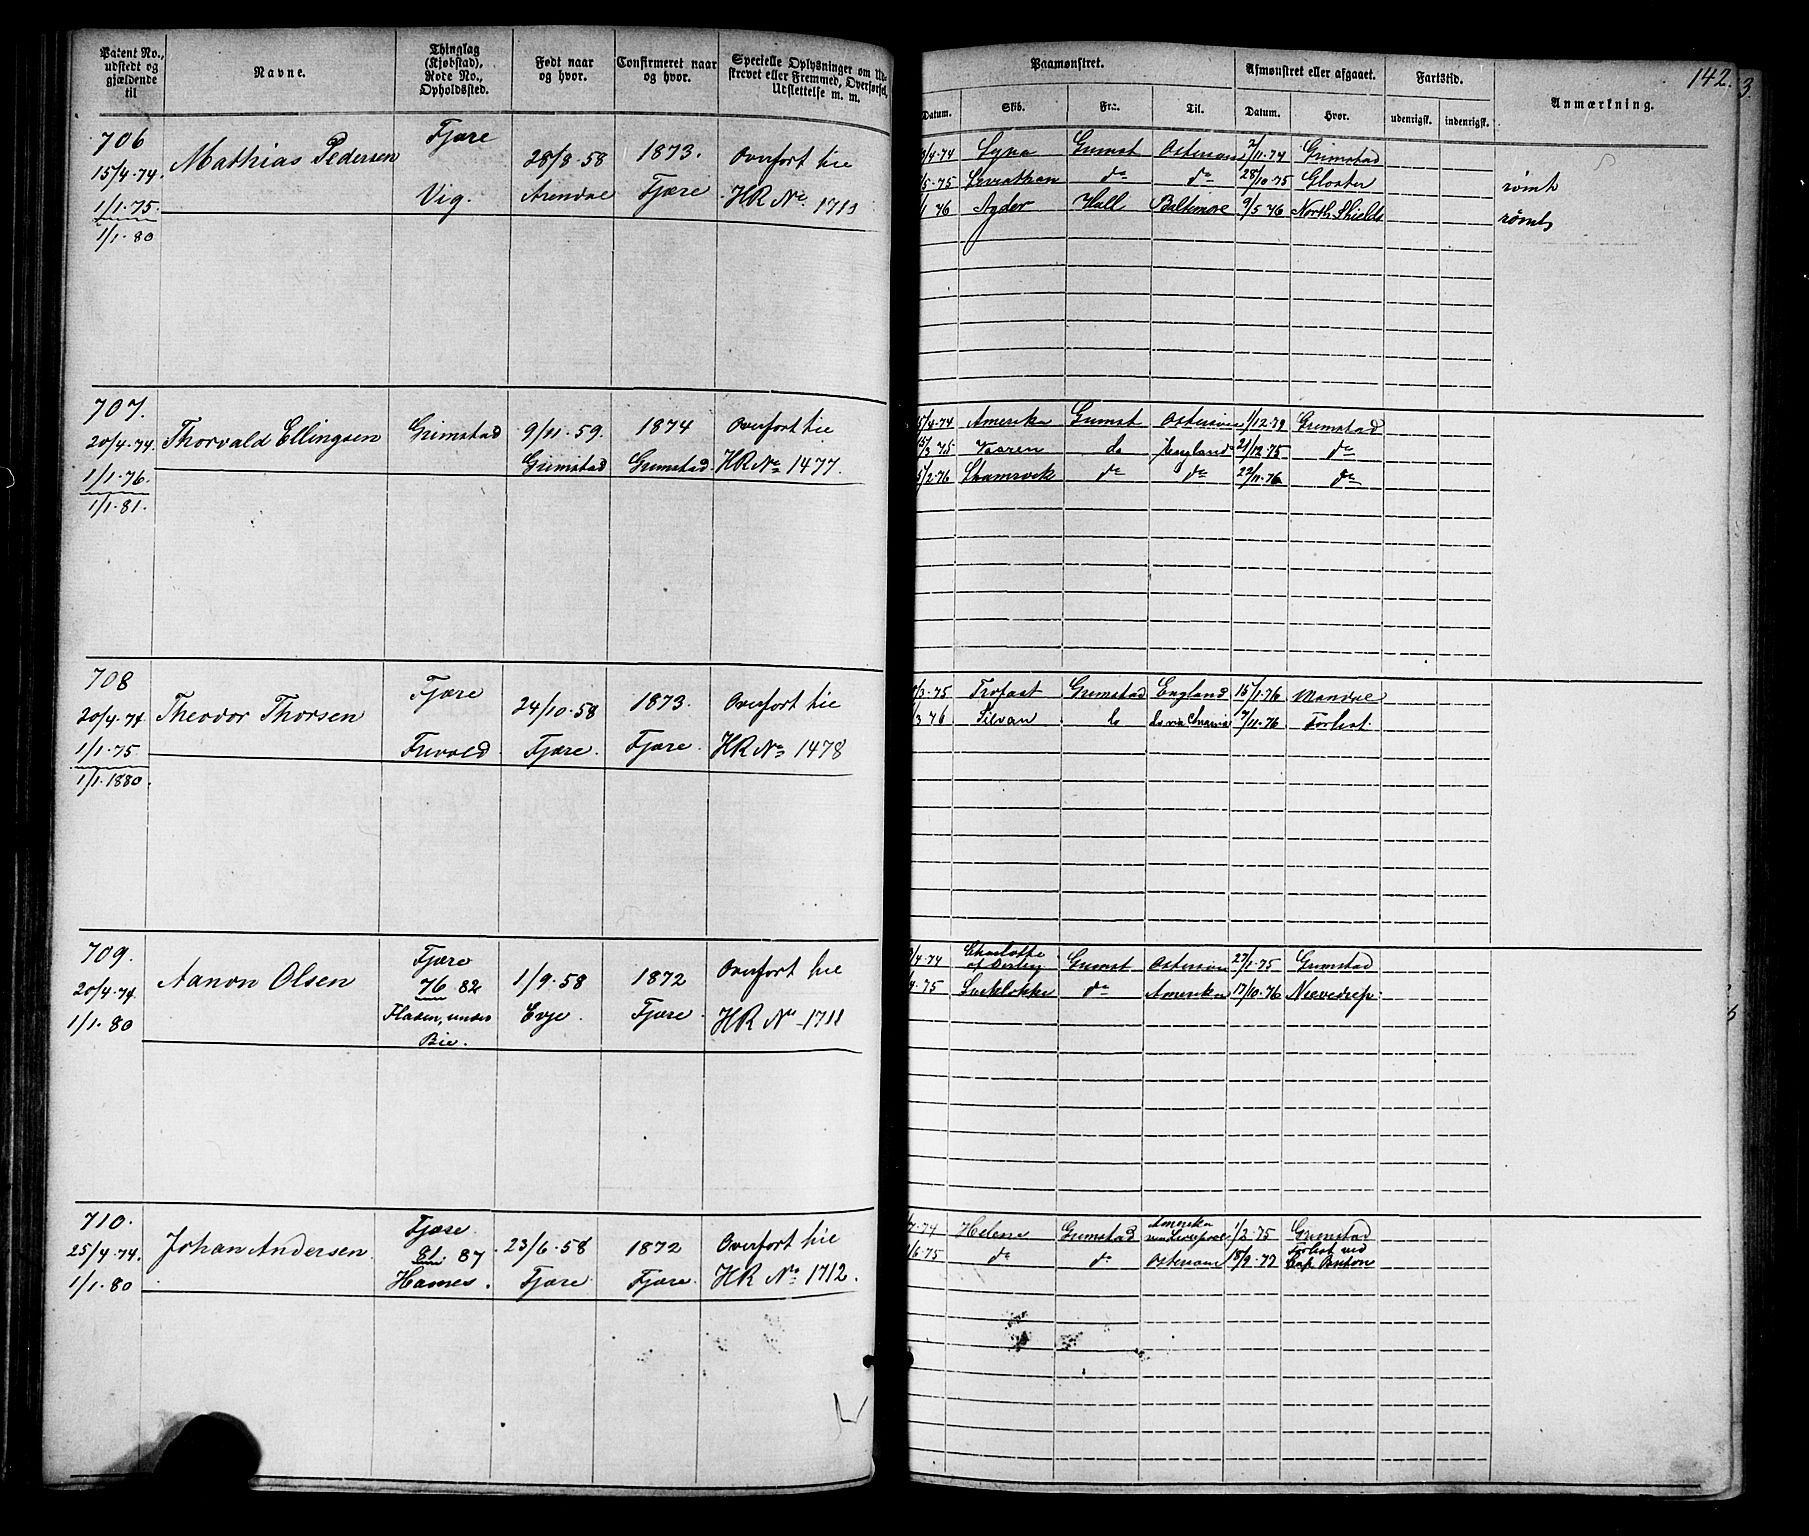 Patent No., udstedt og gjældende til
Navne.
Thinglag (Kjøbstad), Rode No., Opholdssted.
Født naar og hvor.
Confirmeret naar og hvor.
Specielle Oplysninger om Udskrevet eller Fremmed, Overførsel, Udslettelse m. m.
Paamønstret.
Afmønstret eller afgaaet.
Fartstid.
Anmærkning.
142.
3.
Datum.
Skib.
Fra:
Til.
Datum.
Hvor.
udenrigsk.
indenrigsk.
706
15/4.74.
1/1.75.
1/1.80
Mathias Pedersen
Fjære
Vig.
28/8.58
Arendal
1873.
Fjære
Overført hie
HR No. 1713
/4.74 Grimst Østersøen 2/11.74 Grimstad
/5.75 Leviathan do do 28/10.75 Gloster rømt
/1 76 Agder Hull Baltimore 9/5.76 North Shields rømt
707.
20/4.74
1/1.76.
1/1.81.
Thorvald Ellingsen
Grimstad
9/11.59.
Grimstad
1874
Grimstad
Overført hie
HR No 1477.
15/4.74 Amerika Grimst Østersøen 1/12.74 Grimstad
15/3 75 Vaaren do England 21/12.75 do
5/2.76 Shamrock do do 22/11.76 do
708
20/4.74
1/1.75
1/1.1880.
Theodor Thorsen
Fjære
Frivold
24/10.58
Fjære.
1873.
Fjære.
Overført hie
HR No 1478
/3.75 Trofast Grimstad England 15/1.76 Mandal
/3 76 Silvan do do 7/11.76 Forlist.
709.
20/4.74
1/1.80
Aanon Olsen
Fjære
76 82
Fladen, under Bie.
1/9.58
Evje.
1872
Fjære.
Overført hie
HR No 1711
/4.74 Charlotte af Derby Grimst Østersøen 27/1.75 Grimstad
/4.75 do Amerika 17/10.76 Nievediep.
710.
25/4.74.
1/1.80
Johan Andersen
Fjære.
81. 87
Hames.
23/6.58
Fjære.
1872
Fjære.
Overført hie
HR No 1712.
/7.74 Helene Grimstad Amerika via Liverpool 1/2.75 Grimstad
/6.75 do do Østersøen 18/9.77 Forlist ved Cap Breton